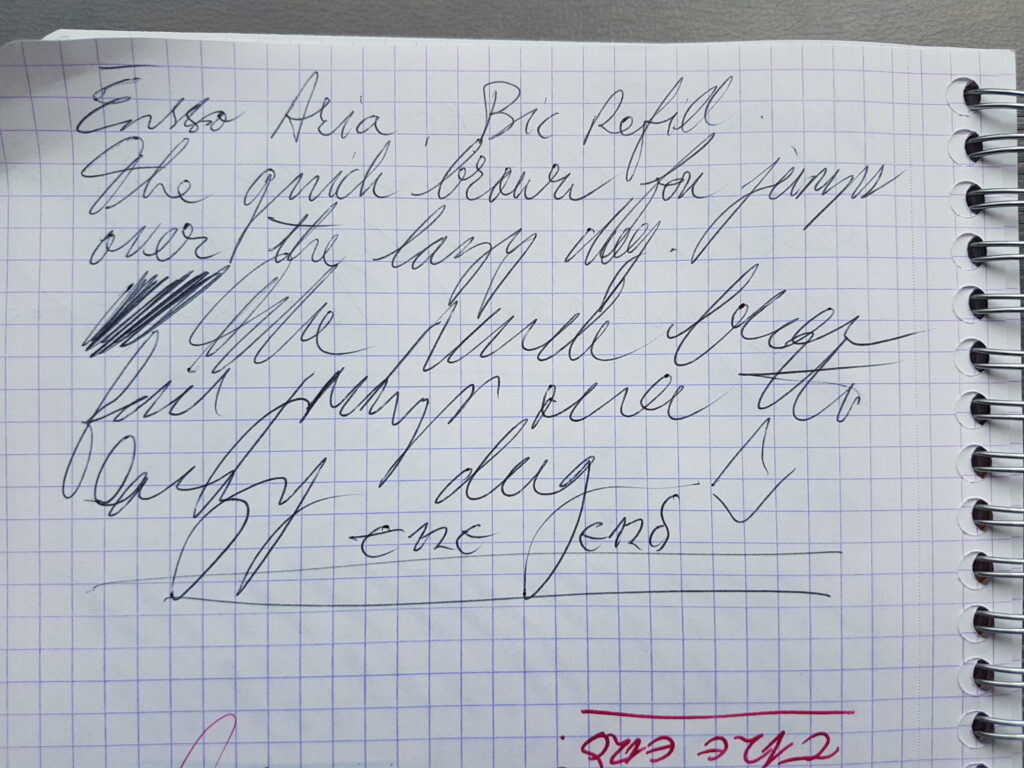 Ensso Aria. Bic Refill.
The quick brown fox jumps
over the lazy dog.
The quick brown
fox jumps over the
lazy dog
the end
the end.